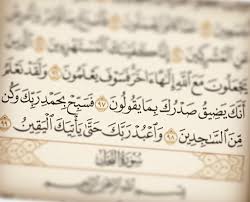 ٱلْمُشْرِكِينَ إِنَّا كَفَيْنَٰكَ ٱلْمُسْتَهْزِءِينَ
يَجْعَلُونَ مَعَ ٱللَّهِ إِلَٰهًا ءَاخَرَ فَسَوْفَ يَعْلَمُونَ ٩٦ وَلَقَدْ نَعْلَمُ
أَنَّكَ يَضِيقُ صَدْرُكَ بِمَا يَقُولُونَ ٩٧ فَسَبِّحْ بِحَمْدِ رَبِّكَ وَكُن
مِّنَ ٱلسَّٰجِدِينَ ٩٨ وَٱعْبُدْ رَبَّكَ حَتَّىٰ يَأْتِيَكَ ٱلْيَقِينُ ٩٩
سُورَةُ النَّحْلِ